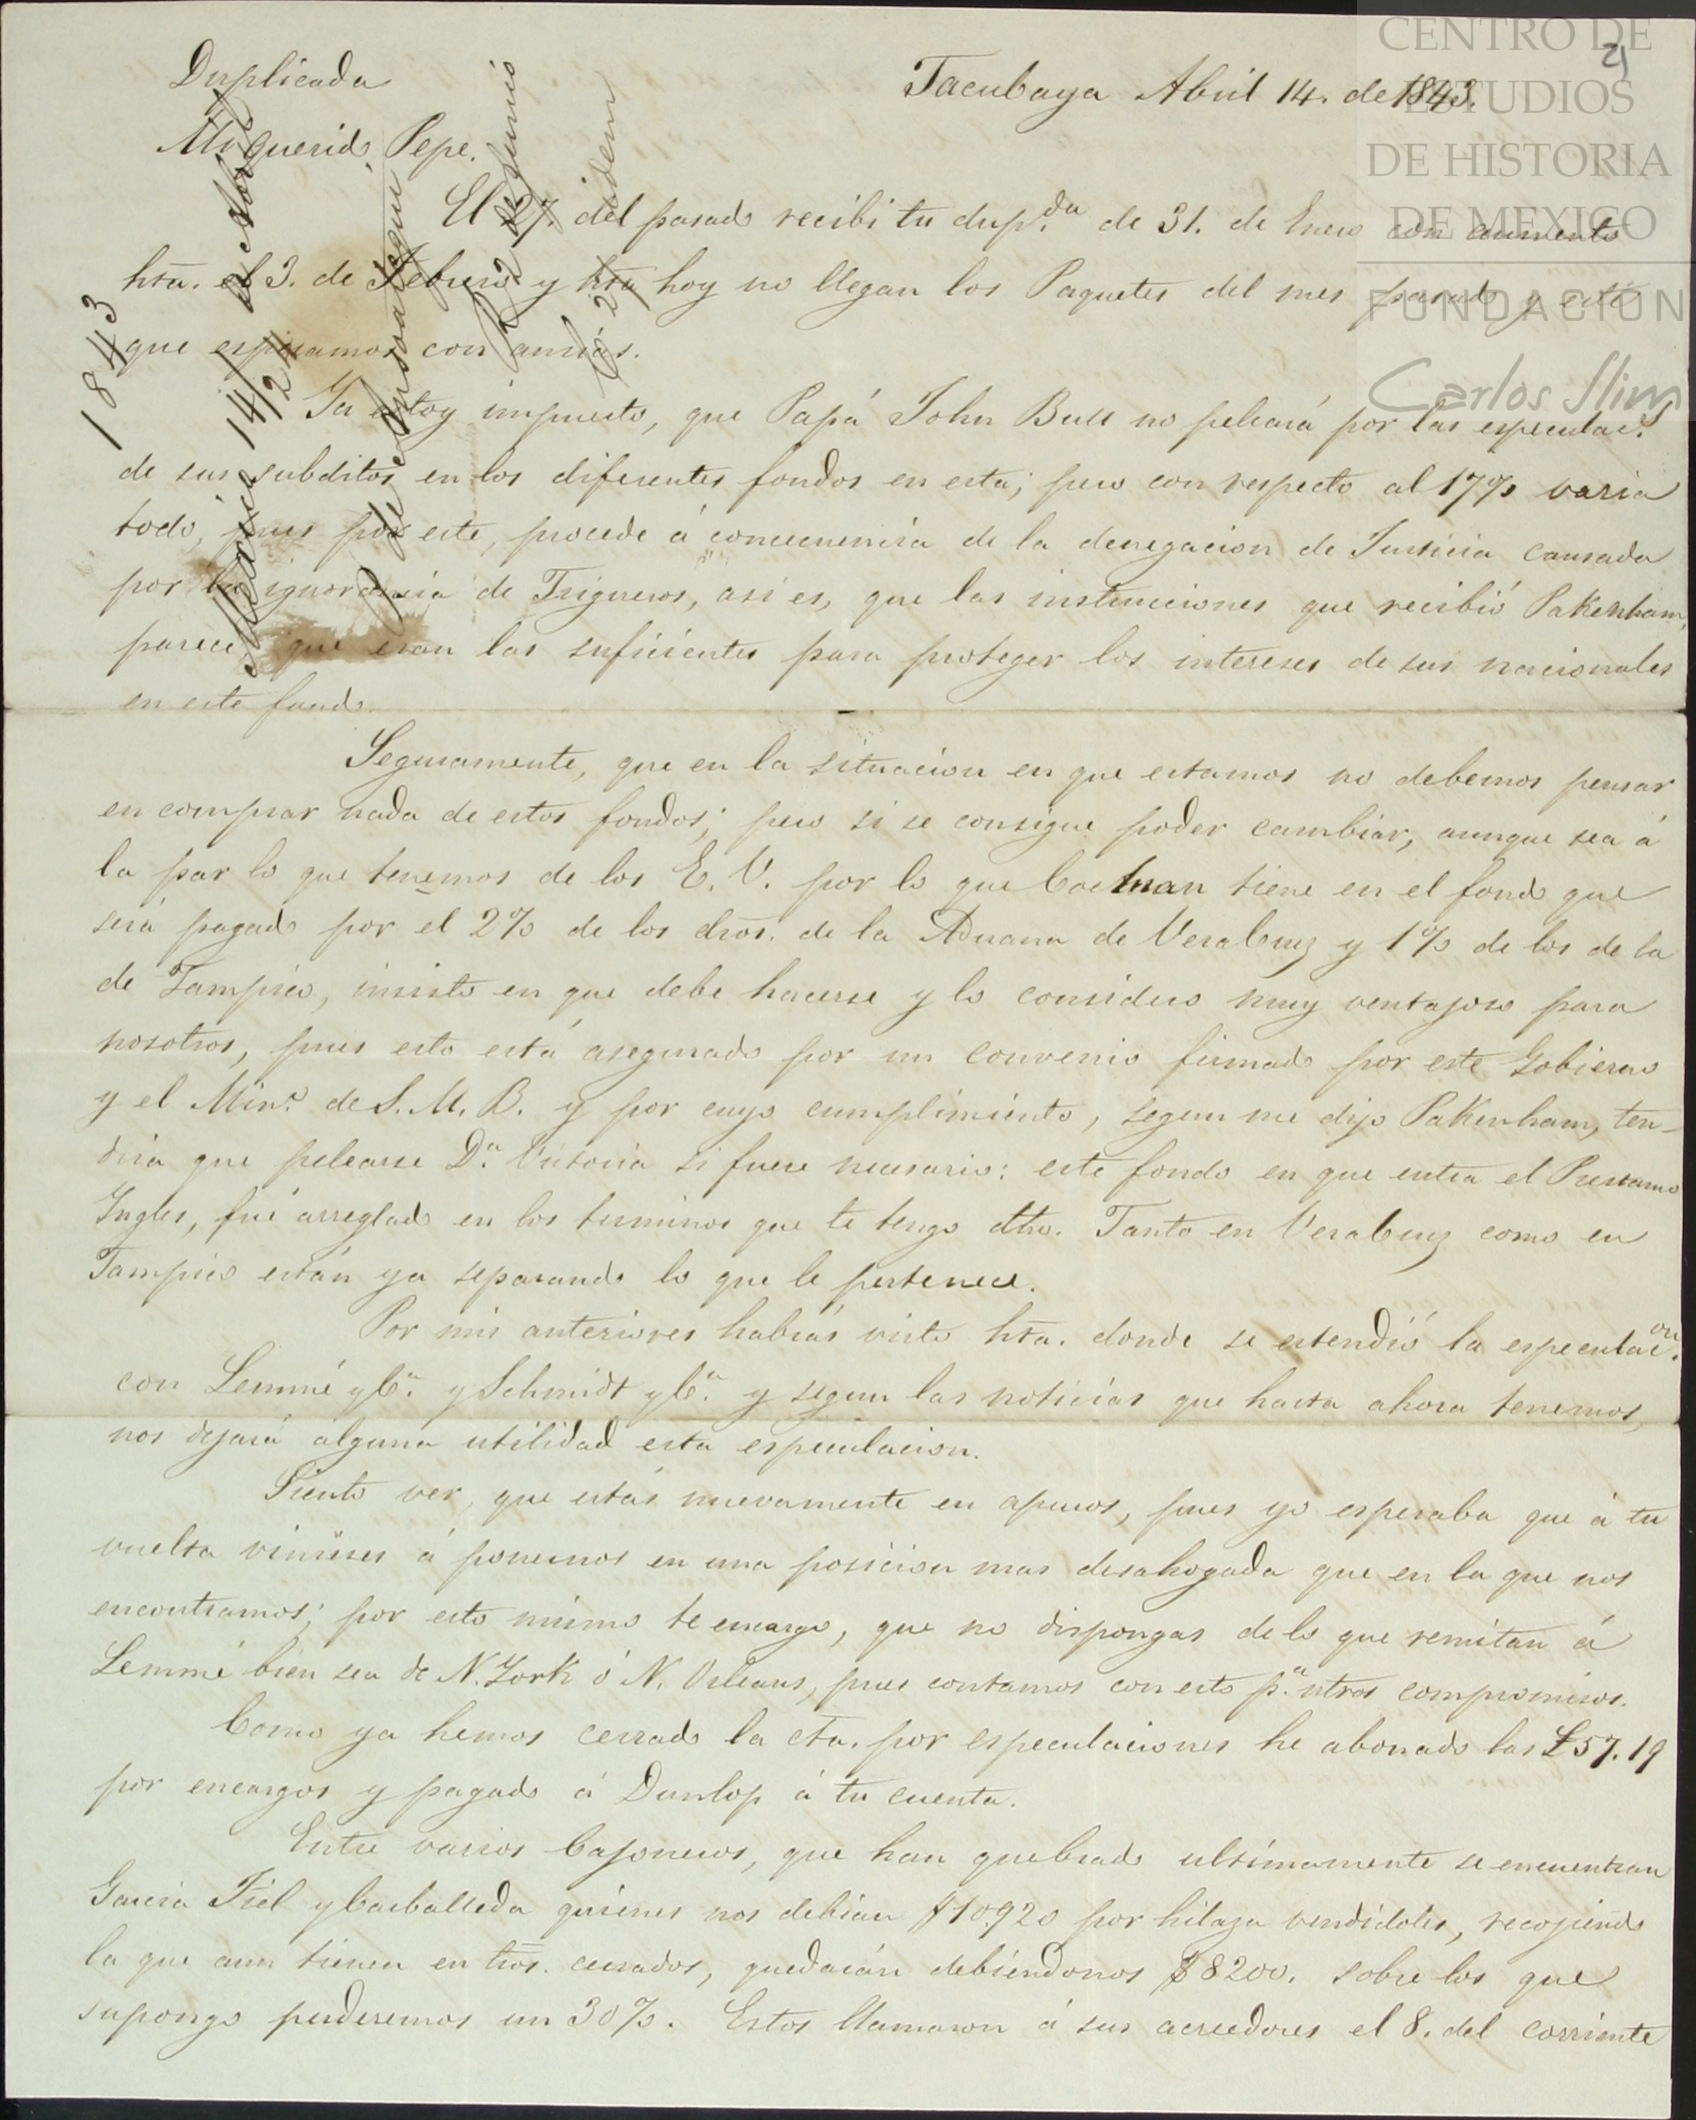 CENTRO DE
ESTUDIOS
DE HISTORIA
DE MEXICO
FUNDACION
Carlos Slim
21
Duplicada
Tacubaya Abril 14. de 1843.
Mi querido Pepe.
El 27. del pasado recibi tu dup.da de 31. de Enero con aumento
hta. el 3. de Febrero y hta hoy no llegan los Paquetes del mes pasado y este
que esperamos con ansias.
Ya estoy impuesto, que Papá John Bull no peleará por las especulac.s
de sus subditos en los diferentes fondos en esta; pero con respecto al 17% varia
todo, pues por este, procede á consecuencia de la denegacion de Justicia causada
por la ignorancia de Trigueros, asi es, que las instrucciones que recibió Pakenham,
parece que eran las suficientes para proteger los intereses de sus nacionales
en este fondo.
Seguramente, que en la situacion en que estamos no debemos pensar
en comprar nada de estos fondos; pero si se consigue poder cambiar, aunque sea á
la par lo que tenemos de los E. V. por lo que tiene en el fondo que
será pagado por el 2% de los dros. de la Aduana de VeraCruz y 1% de los de la
de Tampico, insisto en que debe hacerse y lo considero muy ventajoso para
nosotros, pues esto está asegurado por un convenio firmado por este Gobierno
y el Min.o de S. M. B. y por cuyo cumplimiento, segun me dijo Pakenham, ten-
dria que pelearse D.a Victoria si fuere necesario: este fondo en que entra el Prestamo
Ingles, fué arreglado en los terminos que te tengo dho. Tanto en VeraCruz como en
Tampico están ya separando lo que le pertenece.
Por mis anteriores habrás visto hta. donde se estendió la especulac.on
con Lemmé y C.a y Schmidt y C.a y segun las noticias que hasta ahora tenemos,
nos dejará alguna utilidad esta especulacion.
Siento ver, que estás nuevamente en apuros, pues yo esperaba que á tu
vuelta vinieses á ponernos en una posicion mas desahogada que en la que nos
encontramos; por esto mismo te encargo, que no dispongas de lo que remitan á
Lemmé bien sea de N. York ó N. Orleans, pues contamos con esto p.a ntros compromisos.
Como ya hemos cerrado la cta. por especulaciones he abonado las £57.19
por encargos y pagado á Dunlop á tu cuenta.
Entre varios Cajoneros, que han quebrado ultimamente se encuentran
Garcia Fiel y Carballeda quienes nos debian $10920 por hilaza vendidoles, recojiendo
la que aun tienen en tros. cerrados, quedarán debiendonos $8200. sobre los que
supongo perderemos un 30%. Estos llamaron á sus acreedores el 8. del corriente
1843
14/24 de Abril
R 2 de Junio
C 2/ idem